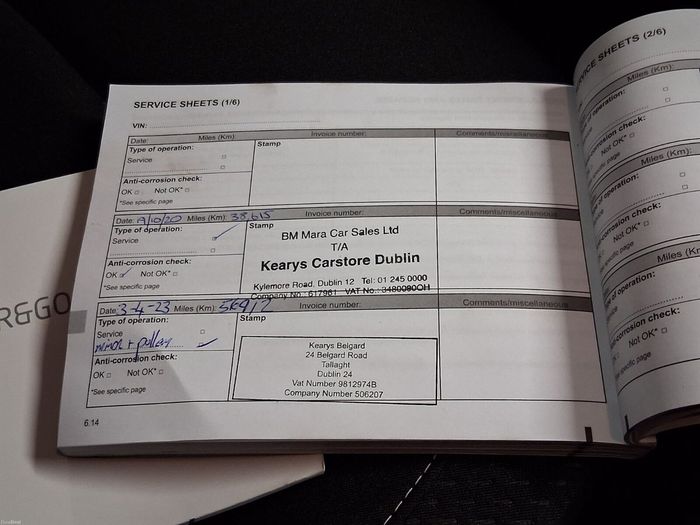 SERVICE SHEETS (1/6)
VIN:
Date: Miles (Km): Invoice number: Comments/miscellaneous
Type of operation:
Service
Stamp
Anti-corrosion check:
OK □ Not OK* □
*See specific page
Date: Miles (Km): 38,615 Invoice number: Comments/miscellaneous
Type of operation:
Service
Stamp
BM Mara Car Sales Ltd
T/A
Kearys Carstore Dublin
Kylemore Road, Dublin 12 Tel: 01 245 0000
Company No.: 617981 VAT No.: 3480090OH
Anti-corrosion check:
OK □ Not OK* □
*See specific page
Date: 3-4-23 Miles (Km): Invoice number: Comments/miscellaneous
Type of operation:
Service
minor + pollen
Stamp
Kearys Belgard
24 Belgard Road
Tallaght
Dublin 24
Vat Number 9812974B
Company Number 506207
Anti-corrosion check:
OK □ Not OK* □
*See specific page
6.14
R&GO
SERVICE SHEETS (2/6)
Miles (Km):
of operation:
corrosion check:
Not OK* □
specific page
Miles (Km):
of operation:
corrosion check:
Not OK* □
specific page
Miles (Km):
of operation:
corrosion check:
Not OK* □
See specific page